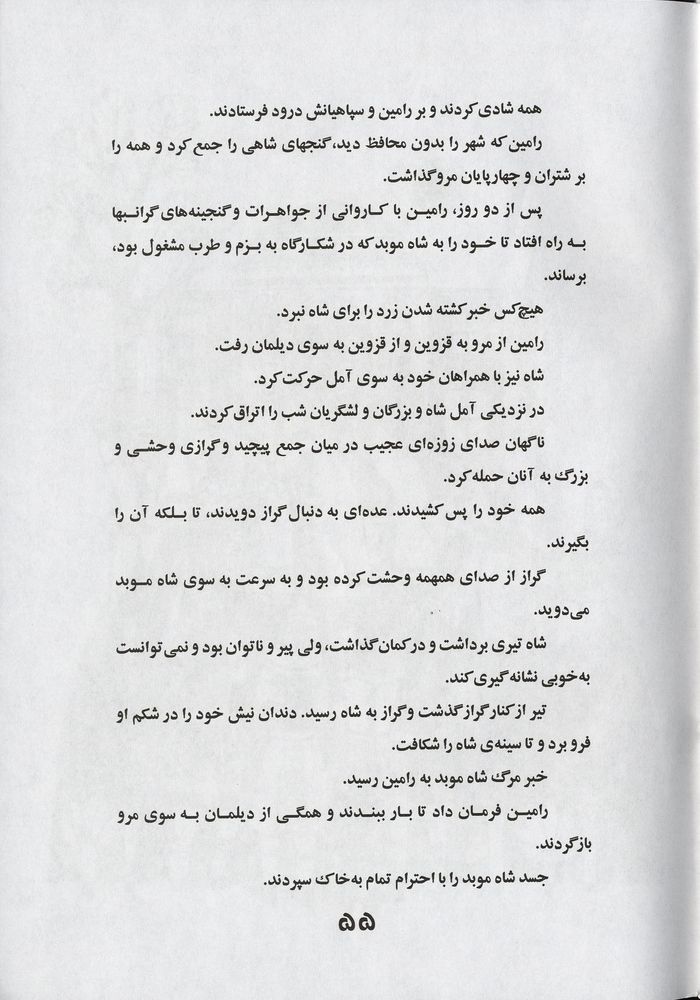 همه شادی کردند و بر رامین و سپاهیانش درود فرستادند.
رامین که شهر را بدون محافظ دید، گنجهای شاهی را جمع کرد و همه را
بر شتران و چهارپایان مرو گذاشت.
پس از دو روز، رامین با کاروانی از جواهرات و گنجینه‌های گرانبها
به راه افتاد تا خود را به شاه موبد که در شکارگاه به بزم و طرب مشغول بود،
برساند.
هیچ‌کس خبر کشته شدن زرد را برای شاه نبرد.
رامین از مرو به قزوین و از قزوین به سوی دیلمان رفت.
شاه نیز با همراهان خود به سوی آمل حرکت کرد.
در نزدیکی آمل شاه و بزرگان و لشگریان شب را اتراق کردند.
ناگهان صدای زوزه‌ای عجیب در میان جمع پیچید و گرازی وحشی و
بزرگ به آنان حمله کرد.
همه خود را پس کشیدند. عده‌ای به دنبال گراز دویدند، تا بلکه آن را
بگیرند.
گراز از صدای همهمه وحشت کرده بود و به سرعت به سوی شاه موبد
می‌دوید.
شاه تیری برداشت و در کمان گذاشت، ولی پیر و ناتوان بود و نمی‌توانست
به‌خوبی نشانه‌گیری کند.
تیر از کنار گراز گذشت و گراز به شاه رسید. دندان نیش خود را در شکم او
فرو برد و تا سینه‌ی شاه را شکافت.
خبر مرگ شاه موبد به رامین رسید.
رامین فرمان داد تا بار ببندند و همگی از دیلمان به سوی مرو
بازگردند.
جسد شاه موبد را با احترام تمام به خاک سپردند.
۵۵